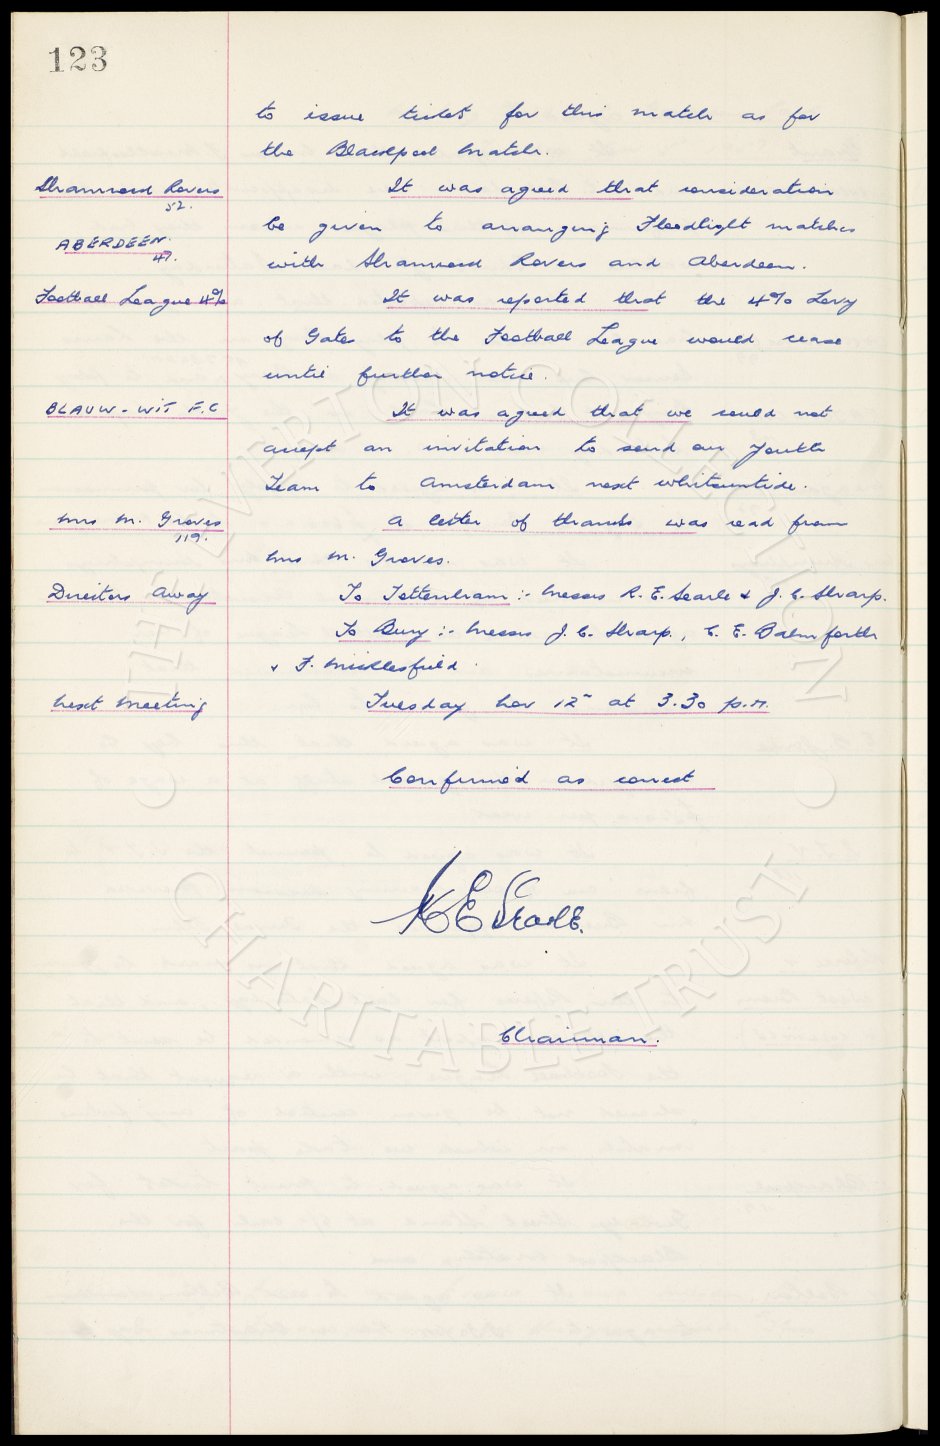 123
to issue tickets for this match as for
the Blackpool Match.
Shamrock Rovers
52.
It was agreed that consideration
be given to arranging Floodlight matches
ABERDEEN.
47.
with Shamrock Rovers and Aberdeen.
Football League 4%
It was reported that the 4% Levy
of Gates to the Football League would cease
until further notice.
BLAUW-WIT F.C
It was agreed that we could not
accept an invitation to send our Youth
Team to Amsterdam next Whitsuntide.
Mrs M. Groves
119.
A letter of thanks was read from
Mrs M. Groves.
Directors Away
To Tottenham :- Messrs R. E. Searle & J. C. Sharp.
To Bury :- Messrs J. C. Sharp, C. E. Balmforth
& F. Micklesfield.
Next Meeting
Tuesday Nov 12" at 3.30 p.m.
Confirmed as correct
R E Searle.
Chairman.
THE EVERTON COLLECTION
CHARITABLE TRUST